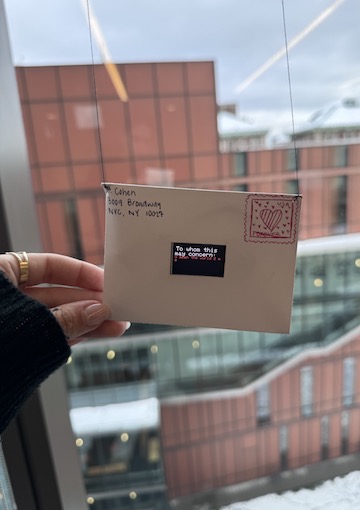 Cohen
3009 Broadway
NYC, NY 10027
To whom this
may concern: